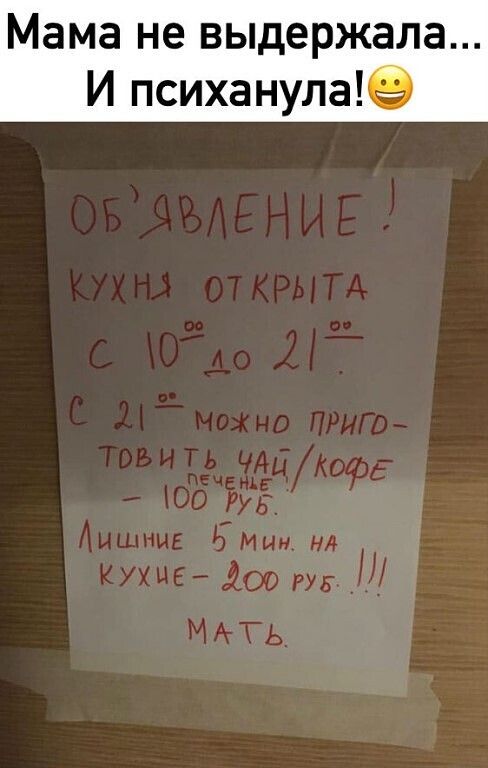 Мама не выдержала...
И психанула!😀
ОБ'ЯВЛЕНИЕ!
КУХНЯ ОТКРЫТА
С 10⁰⁰ ДО 21⁰⁰.
С 21⁰⁰ МОЖНО ПРИГО-
ТОВИТЬ ЧАЙ/КОФЕ
ПЕЧЕНЬЕ!
- 100 РУБ.
ЛИШНИЕ 5 МИН. НА
КУХНЕ - 200 РУБ. !!!
МАТЬ.